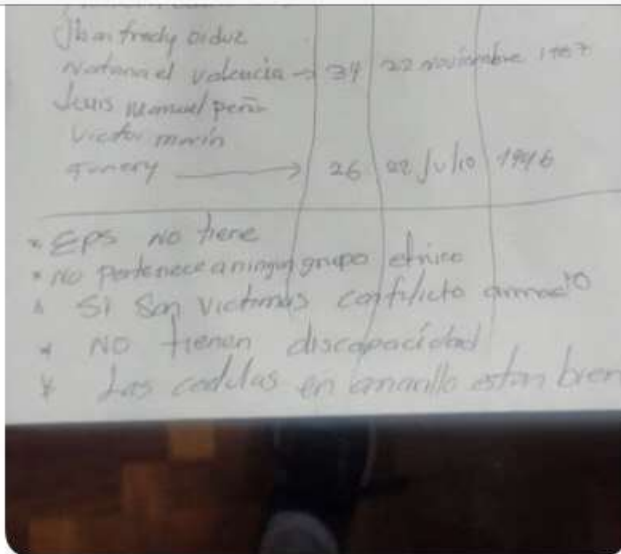 Jhon fredy orduz
Natanael valencia → 34 22 noviembre 1987
Jesus Manuel peña
Victor marin
→ 26 22 Julio 1996
* EPS NO tiene
* No pertenece a ningun grupo etnico
* Si Son victimas conflicto armado
* NO tienen discapacidad
* Las cedulas en amarillo estan bien